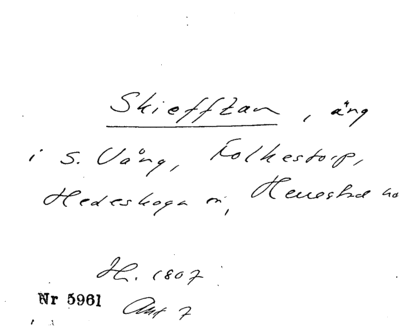 Skiefftan, äng
i S. Vång, Folkestorp,
Hedeskoga sn, Herrestad hd
H. 1807
Nr 5961
Akt 7